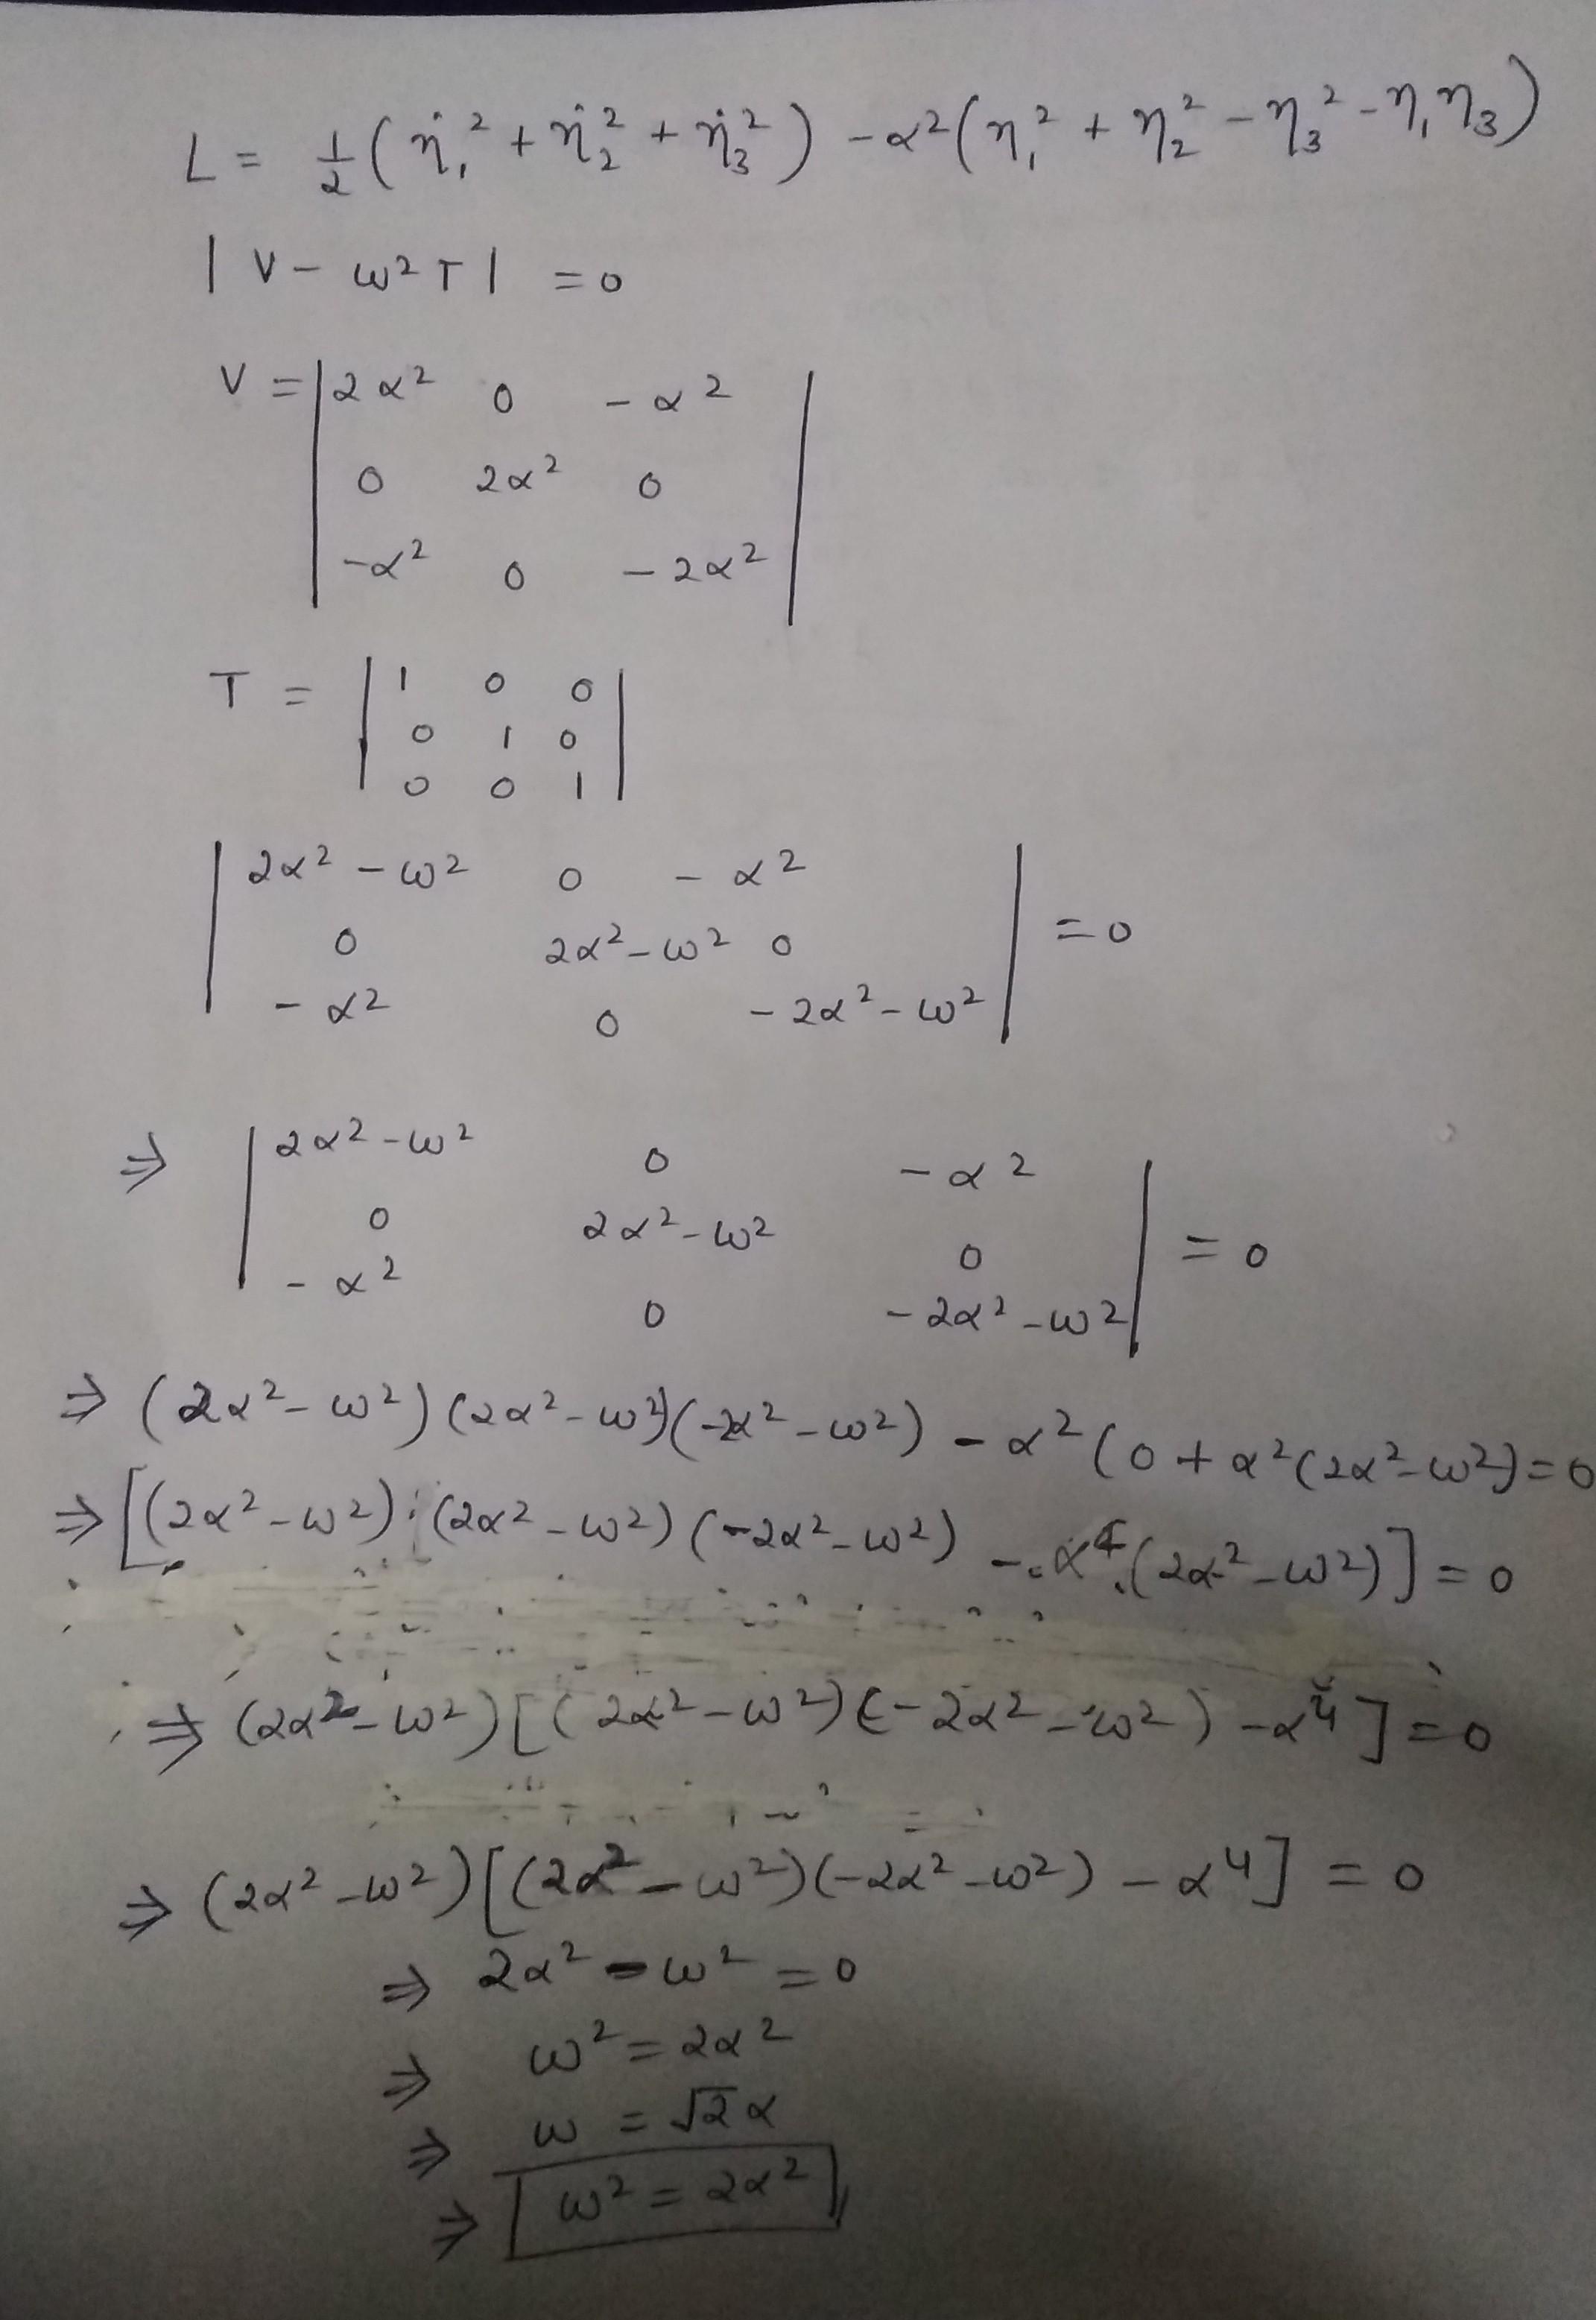 L = ½ ( η̇₁² + η̇₂² + η̇₃² ) − α² ( η₁² + η₂² − η₃² − η₁η₃ )
| V − ω² T | = 0
V = | 2α² 0 − α² |
| 0 2α² 0 |
| −α² 0 − 2α² |
T = | 1 0 0 |
| 0 1 0 |
| 0 0 1 |
| 2α² − ω² 0 − α² |
| 0 2α² − ω² 0 | = 0
| − α² 0 − 2α² − ω² |
⇒ | 2α² − ω² 0 − α² |
| 0 2α² − ω² 0 | = 0
| − α² 0 − 2α² − ω² |
⇒ (2α² − ω²) (2α² − ω²)(−2α² − ω²) − α² ( 0 + α² (2α² − ω²) = 0
⇒ [(2α² − ω²) (2α² − ω²) (−2α² − ω²) − α⁴ (2α² − ω²)] = 0
⇒ (2α² − ω²) [ (2α² − ω²) (−2α² − ω²) − α⁴ ] = 0
⇒ (2α² − ω²) [(2α² − ω²)(−2α² − ω²) − α⁴] = 0
⇒ 2α² − ω² = 0
⇒ ω² = 2α²
⇒ ω = √2 α
⇒ ω² = 2α²